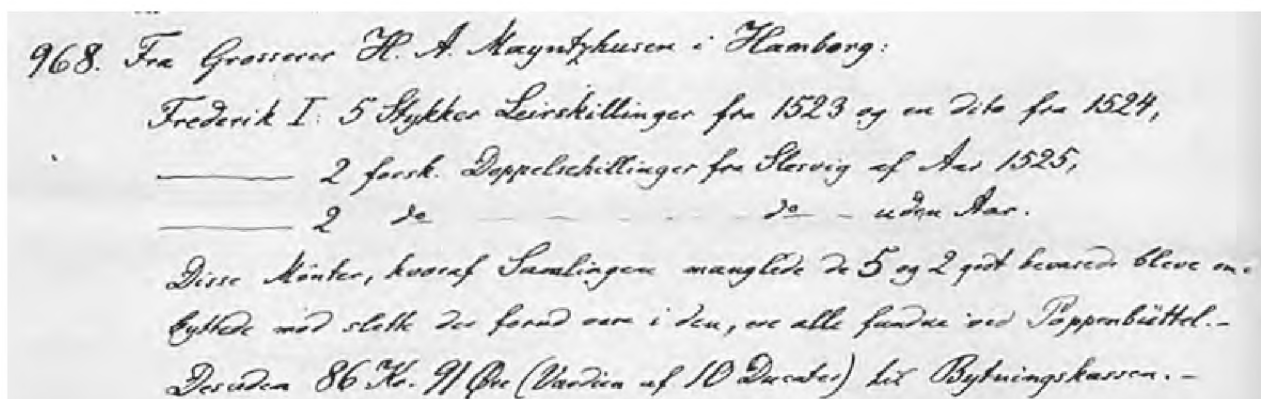 968. Fra Grosserer H. A. Mayntzhusen i Hamborg:
Frederik I: 5 Stykker Leirskillinger fra 1523 og en dito fra 1524,
——— 2 forsk. Doppelschillinger fra Slesvig af Aar 1525,
——— 2 do – – – – – do – uden Aar.
Disse Mønter, hvoraf Samlingen manglede de 5 og 2 godt bevarede bleve om-
byttede mod slette der forud vare i den, ere alle fundne ved Poppenbüttel. –
Desuden 86 Kr. 91 Øre (Værdien af 10 Ducater) til Bytningskassen. –